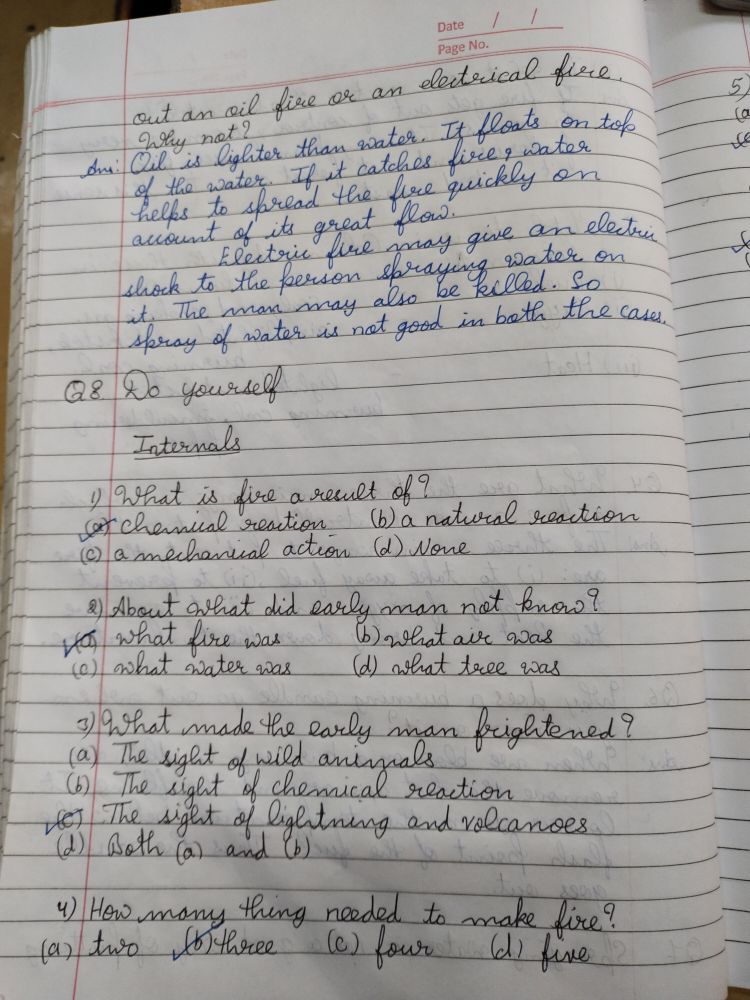 Date / /
Page No.
out an oil fire or an electrical fire.
Why not?
Ans: Oil is lighter than water. It floats on top
of the water. If it catches fire, water
helps to spread the fire quickly on
account of its great flow.
Electric fire may give an electric
shock to the person spraying water on
it. The man may also be killed. So
spray of water is not good in both the cases.
Q8 Do yourself
Internals
1) What is fire a result of?
(a) chemical reaction (b) a natural reaction
(c) a mechanical action (d) None
2) About what did early man not know?
(a) what fire was (b) what air was
(c) what water was (d) what tree was
3) What made the early man frightened?
(a) The sight of wild animals
(b) The sight of chemical reaction
(c) The sight of lightning and volcanoes
(d) Both (a) and (b)
4) How many thing needed to make fire?
(a) two (b) three (c) four (d) five
5)
(a